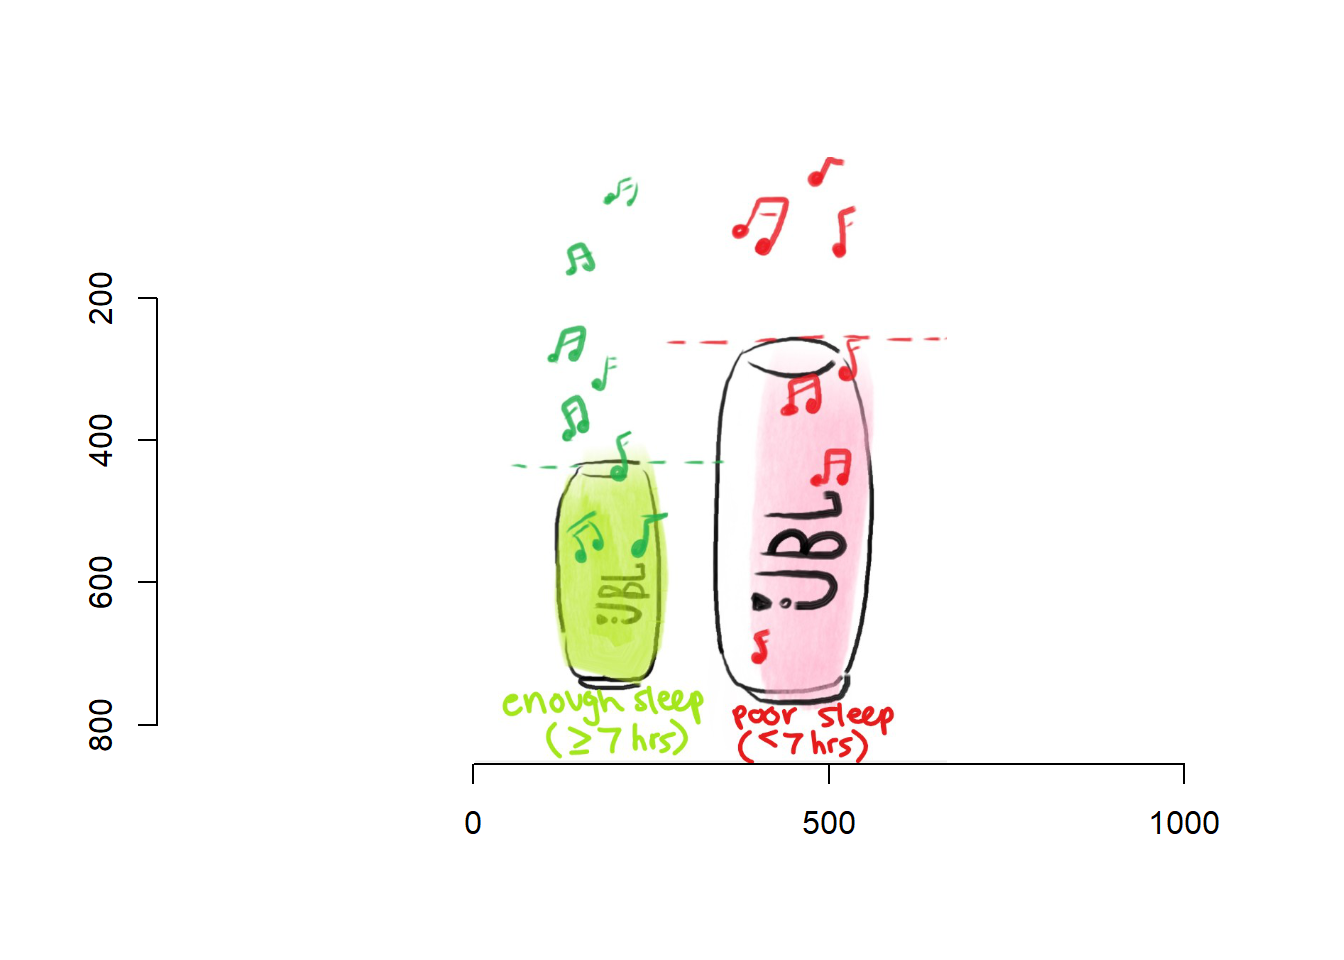 200
400
600
800
JBL
JBL
enough sleep
(≥7 hrs)
poor sleep
(<7 hrs)
0 500 1000